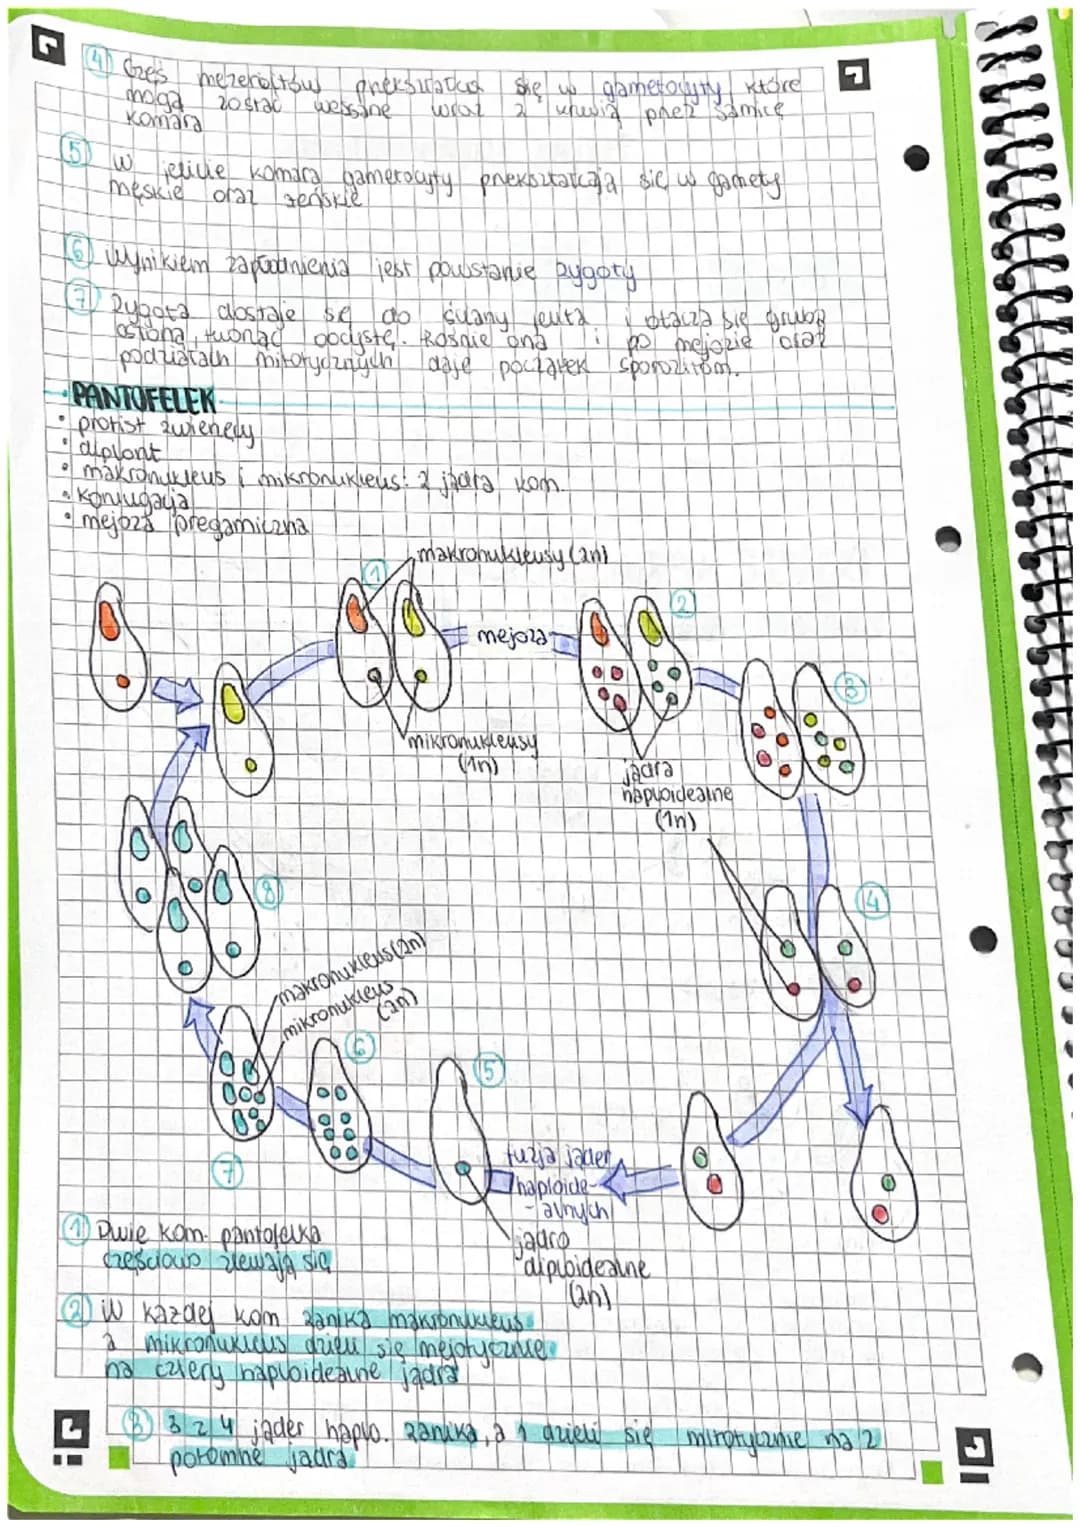 4 Część merozoitów przekształca się w gametocyty, które
mogą zostać wessane wraz z krwią przez samicę
komara
5 W jelicie komara gametocyty przekształcają się w gamety
męskie oraz żeńskie
6 Wynikiem zapłodnienia jest powstanie zygoty
7 Zygota dostaje się do ściany jelita i otacza się grubą
osłoną, tworząc oocystę. Rośnie ona i po mejozie oraz
podziałach mitotycznych daje początek sporozitom.
PANTOFELEK
• protist zwierzęcy
• diplont
• makronukleus i mikronukleus: 2 jądra kom.
• koniugacja
• mejoza pregamiczna
makronukleusy (2n)
1
2
mejoza
3
mikronukleusy
(1n)
jądra
haploidealne
(1n)
4
8
makronukleus (2n)
mikronukleus
(2n)
6
5
7
fuzja jąder
haploide-
-alnych
jądro
diploidealne
(2n)
1 Dwie kom. pantofelka
częściowo zlewają się
2 W każdej kom zanika makronukleus
a mikronukleus dzieli się mejotycznie
na cztery haploidealne jądra
3 3 z 4 jąder haplo. zanika, a 1 dzieli się mitotycznie na 2
potomne jądra